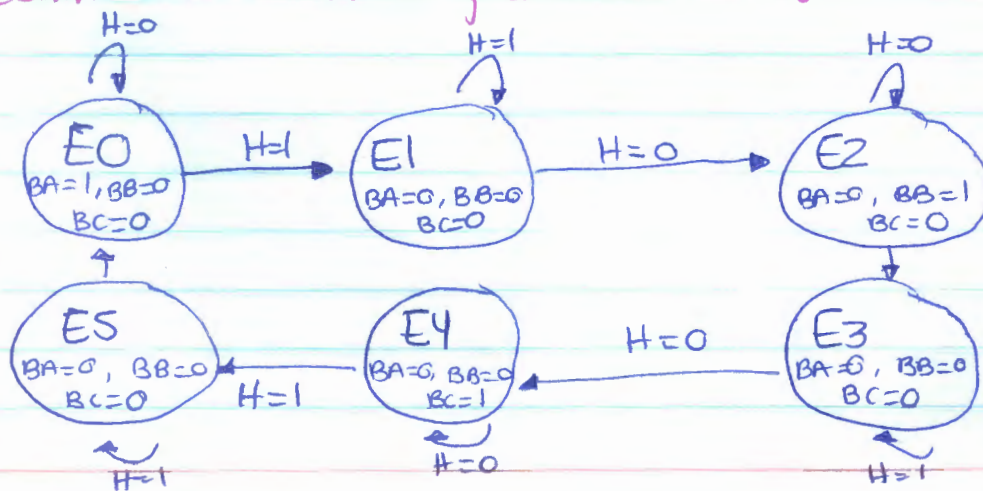 H=0
H=1
H=0
E0
BA=1, BB=0
BC=0
H=1
E1
BA=0, BB=0
BC=0
H=0
E2
BA=0, BB=1
BC=0
E5
BA=0, BB=0
BC=0
H=1
E4
BA=0, BB=0
BC=1
H=0
E3
BA=0, BB=0
BC=0
H=1
H=0
H=1